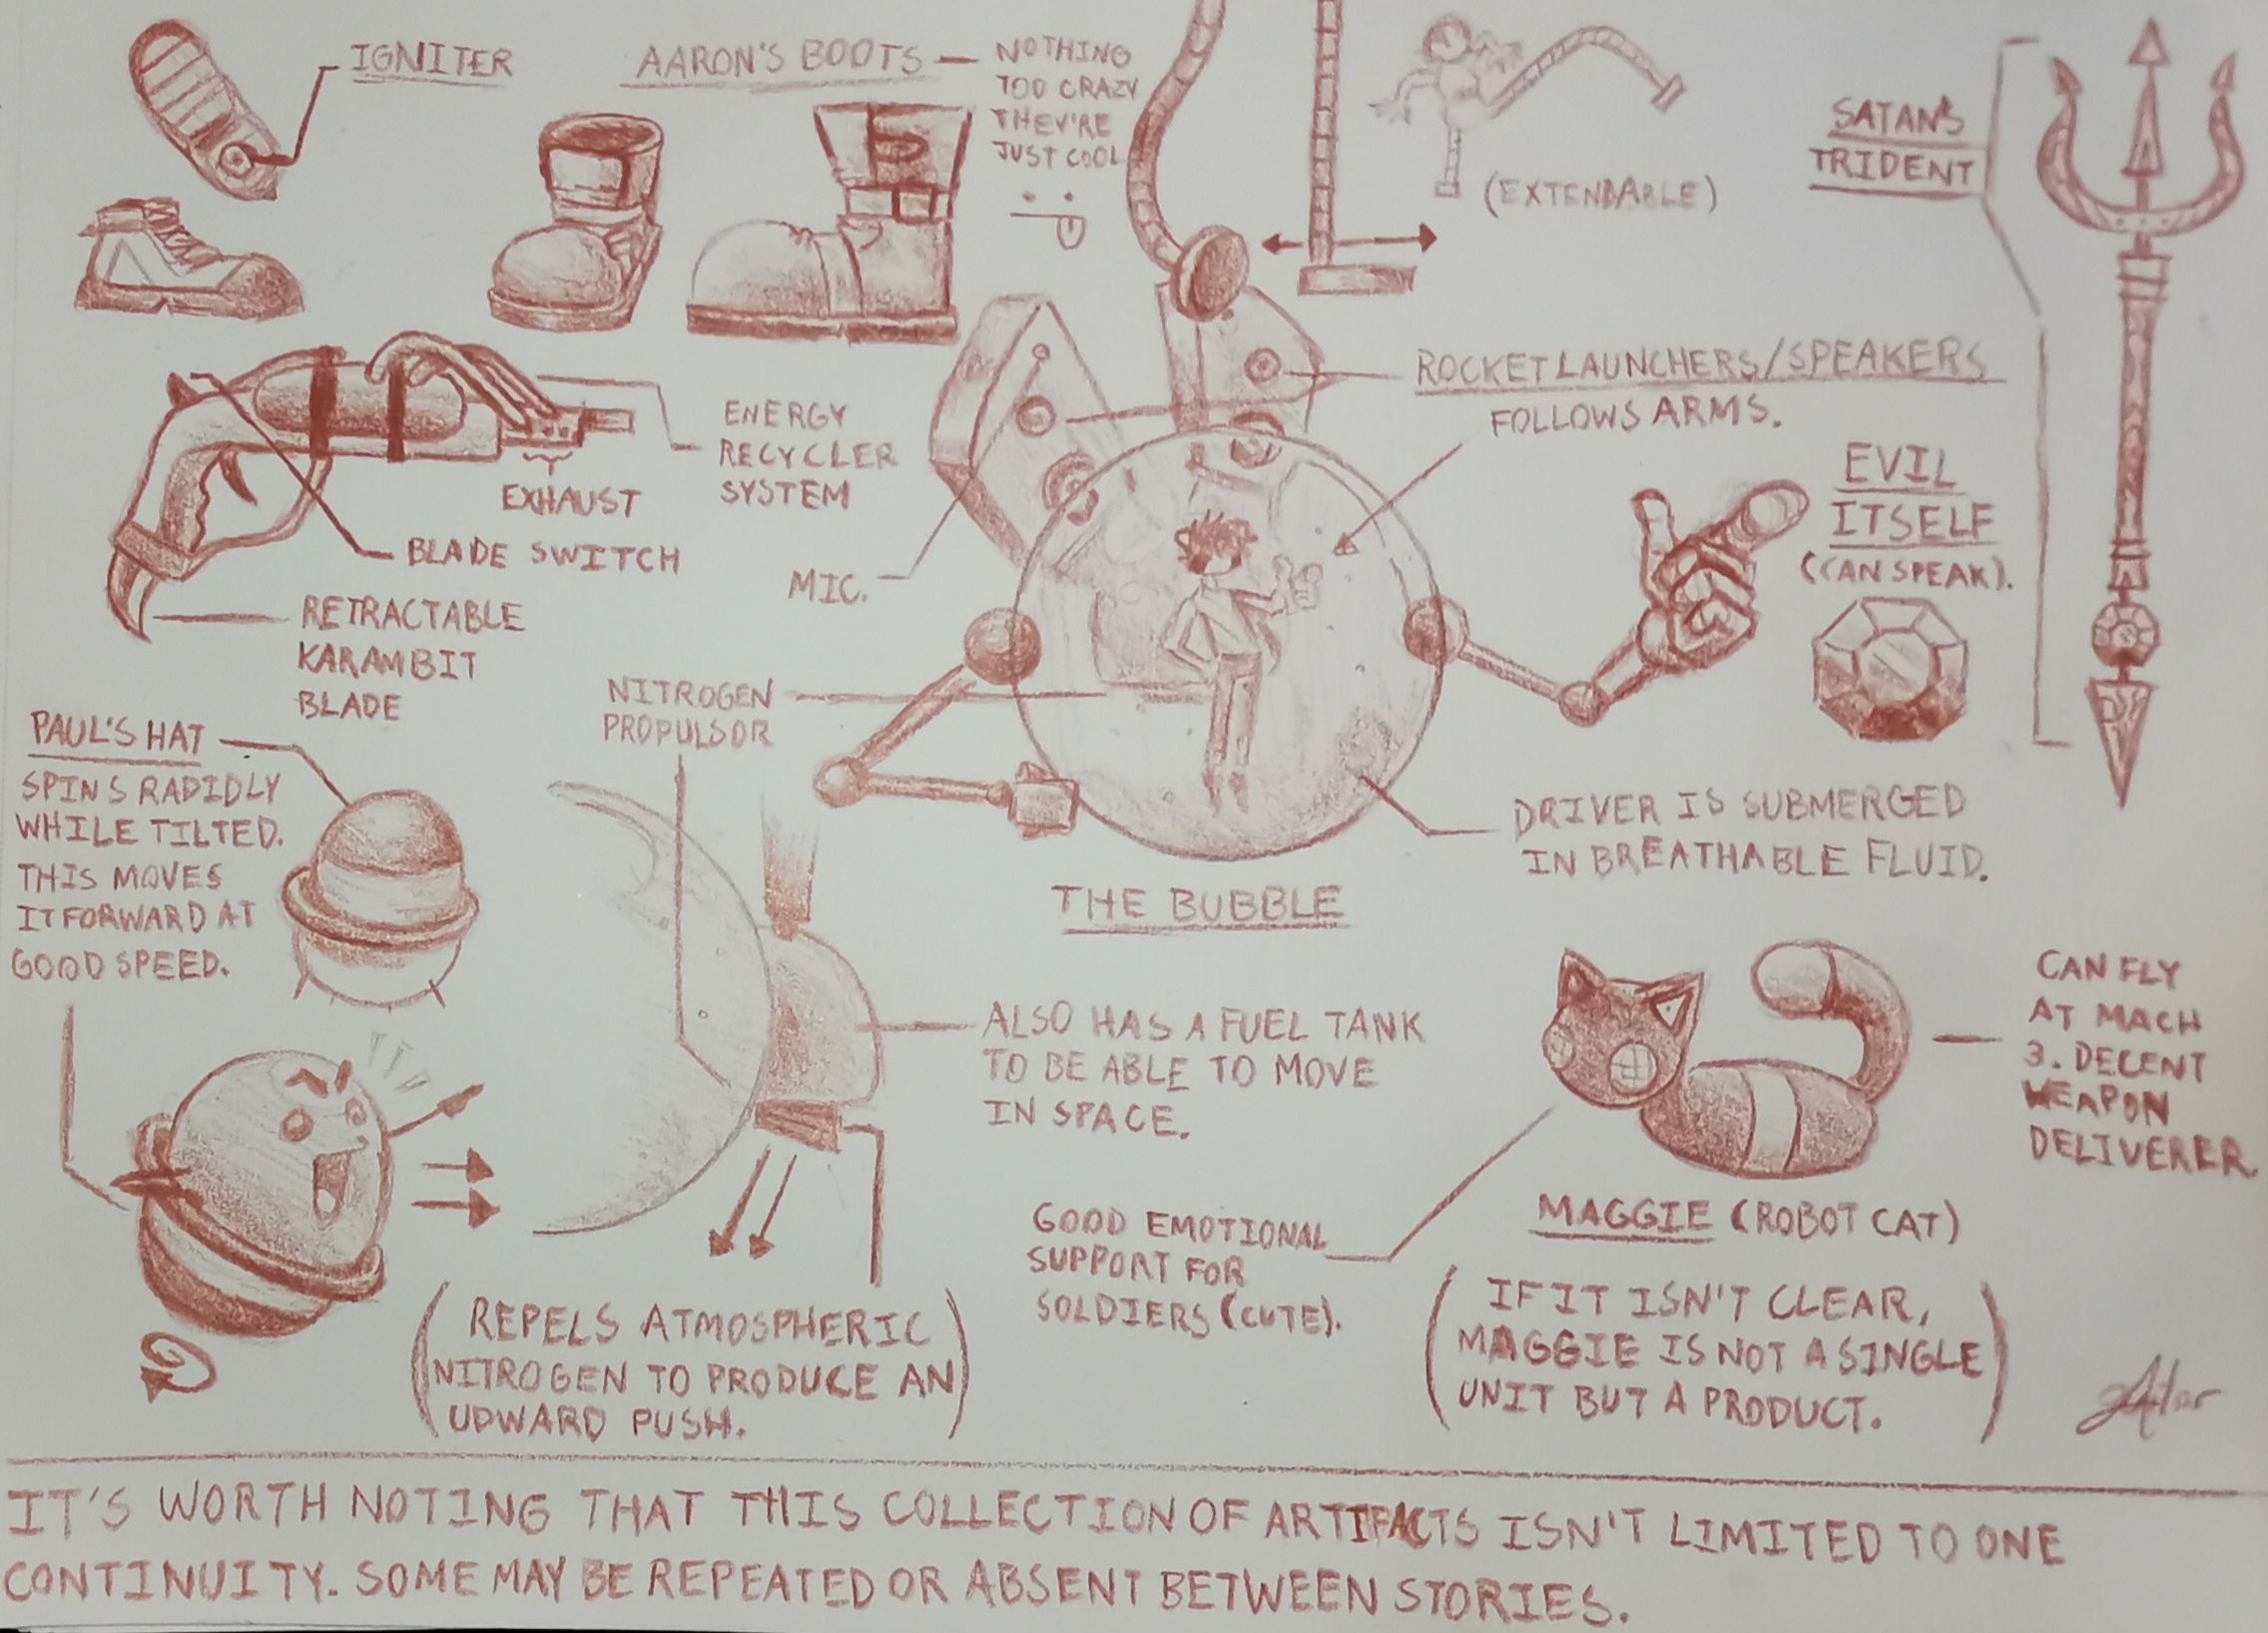 IGNITER
AARON'S BOOTS — NOTHING
TOO CRAZY
THEY'RE
JUST COOL
(EXTENDABLE)
SATAN'S
TRIDENT
ROCKET LAUNCHERS/SPEAKERS
FOLLOWS ARMS.
ENERGY
RECYCLER
SYSTEM
EXHAUST
BLADE SWITCH
RETRACTABLE
KARAMBIT
BLADE
MIC.
EVIL
ITSELF
(CAN SPEAK).
NITROGEN
PROPULSOR
PAUL'S HAT
SPINS RAPIDLY
WHILE TILTED.
THIS MOVES
IT FORWARD AT
GOOD SPEED.
DRIVER IS SUBMERGED
IN BREATHABLE FLUID.
THE BUBBLE
ALSO HAS A FUEL TANK
TO BE ABLE TO MOVE
IN SPACE.
CAN FLY
AT MACH
3. DECENT
WEAPON
DELIVERER.
GOOD EMOTIONAL
SUPPORT FOR
SOLDIERS (CUTE).
MAGGIE (ROBOT CAT)
(IF IT ISN'T CLEAR,
MAGGIE IS NOT A SINGLE
UNIT BUT A PRODUCT.)
(REPELS ATMOSPHERIC
NITROGEN TO PRODUCE AN
UPWARD PUSH.)
IT'S WORTH NOTING THAT THIS COLLECTION OF ARTIFACTS ISN'T LIMITED TO ONE
CONTINUITY. SOME MAY BE REPEATED OR ABSENT BETWEEN STORIES.